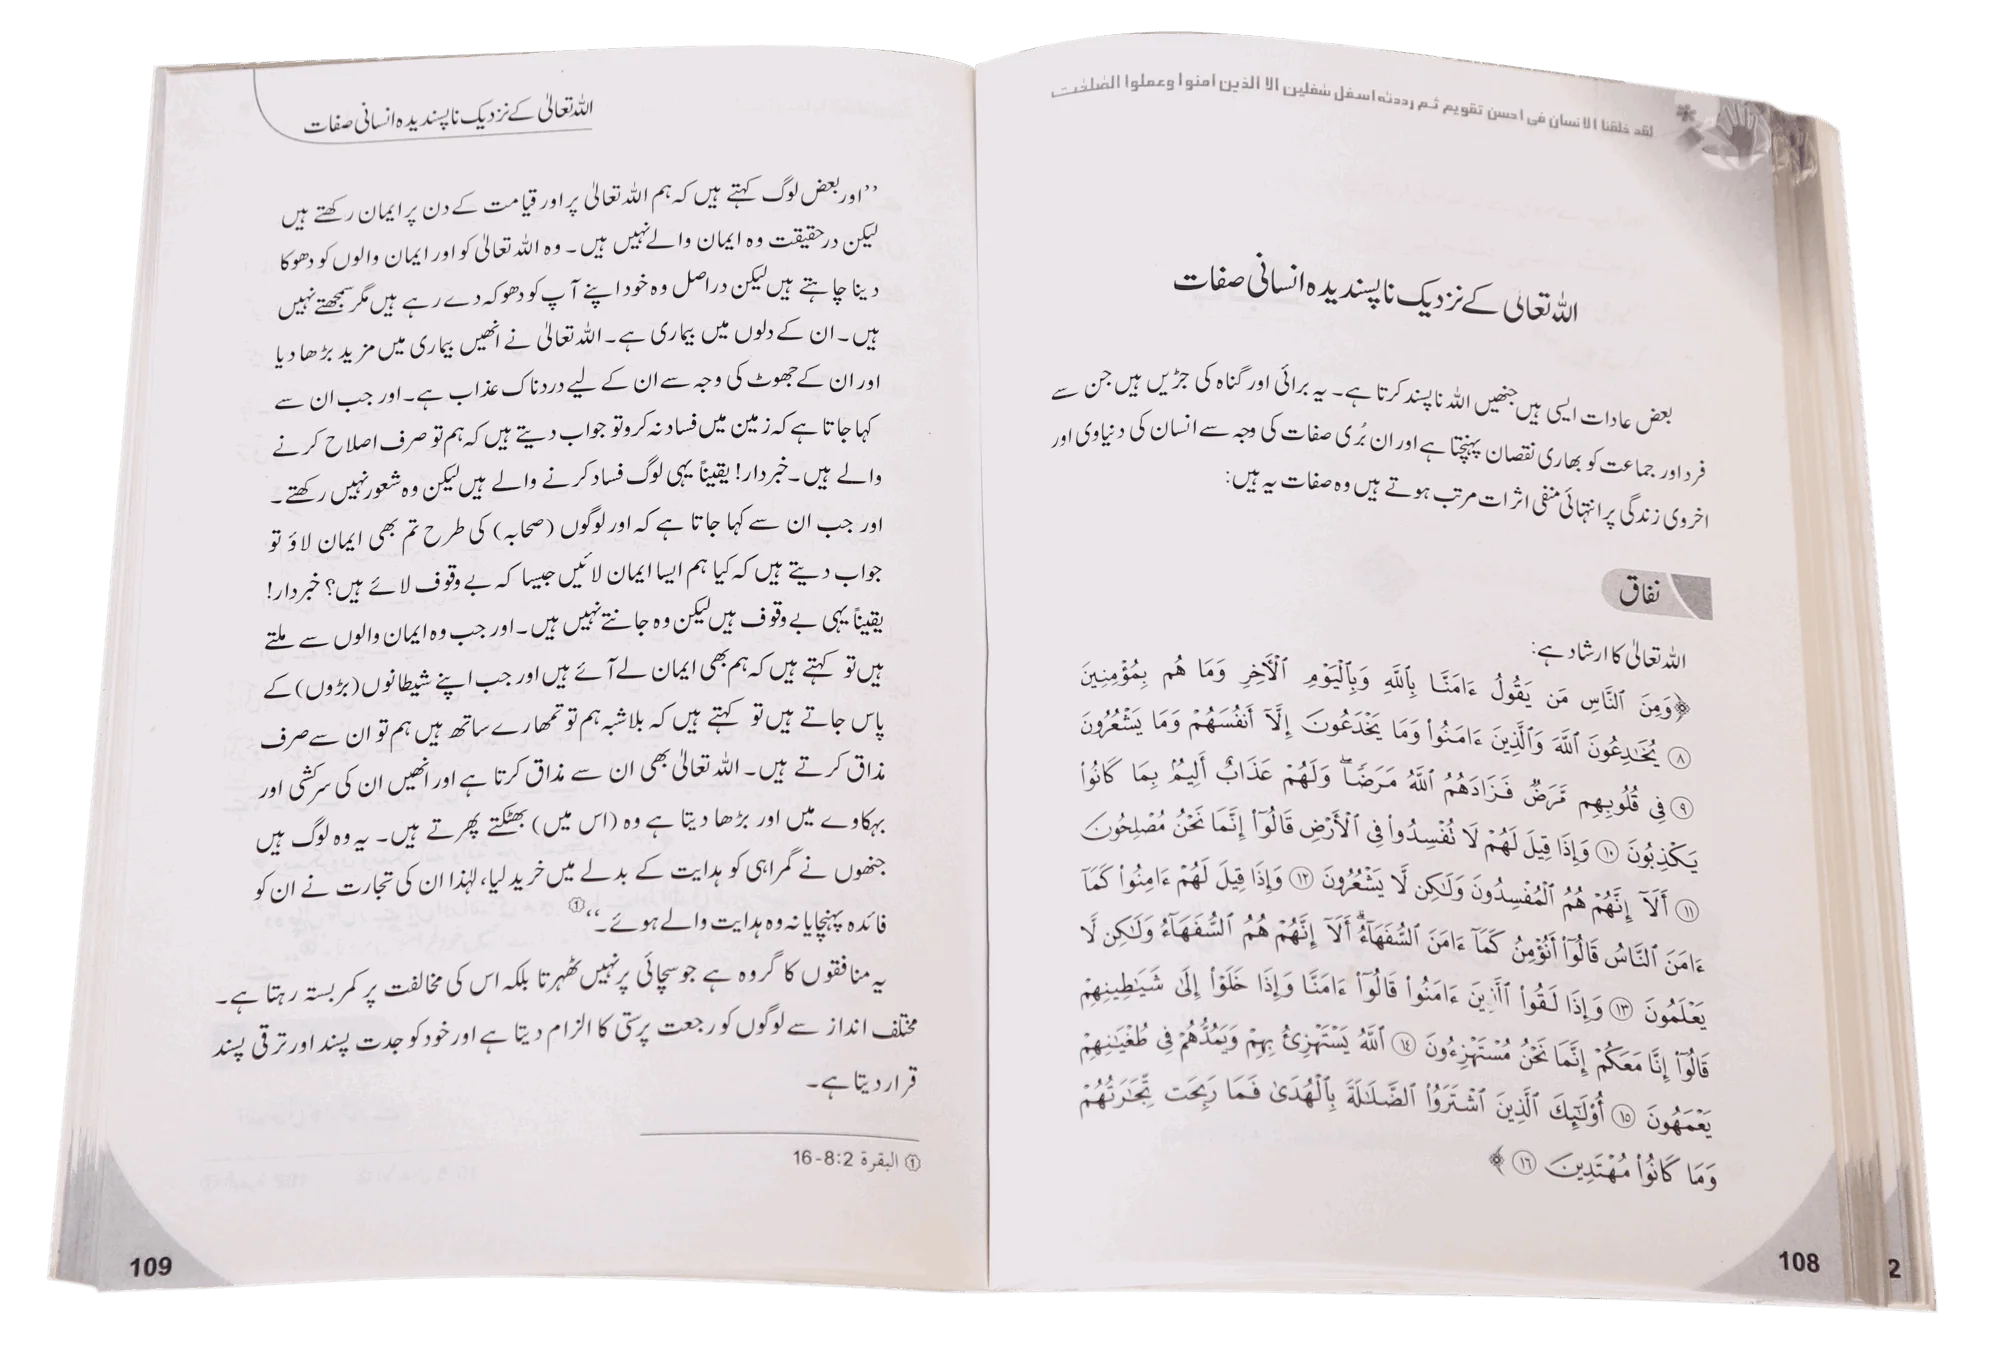 لقد خلقنا الانسان فی احسن تقویم ثم رددنٰه اسفل سٰفلین الا الذین امنوا وعملوا الصٰلحٰت
اللہ تعالیٰ کے نزدیک ناپسندیدہ انسانی صفات
بعض عادات ایسی ہیں جنھیں اللہ ناپسند کرتا ہے۔ یہ برائی اور گناہ کی جڑیں ہیں جن سے
فرد اور جماعت کو بھاری نقصان پہنچتا ہے اور ان بُری صفات کی وجہ سے انسان کی دنیاوی اور
اخروی زندگی پر انتہائی منفی اثرات مرتب ہوتے ہیں وہ صفات یہ ہیں:
نفاق
اللہ تعالیٰ کا ارشاد ہے:
﴿وَمِنَ ٱلنَّاسِ مَن يَقُولُ ءَامَنَّا بِٱللَّهِ وَبِٱلْيَوْمِ ٱلْأَخِرِ وَمَا هُم بِمُؤْمِنِينَ
٨ يُخَٰدِعُونَ ٱللَّهَ وَٱلَّذِينَ ءَامَنُوا۟ وَمَا يَخْدَعُونَ إِلَّآ أَنفُسَهُمْ وَمَا يَشْعُرُونَ
٩ فِى قُلُوبِهِم مَّرَضٌ فَزَادَهُمُ ٱللَّهُ مَرَضًا ۖ وَلَهُمْ عَذَابٌ أَلِيمٌۢ بِمَا كَانُوا۟
يَكْذِبُونَ ١٠ وَإِذَا قِيلَ لَهُمْ لَا تُفْسِدُوا۟ فِى ٱلْأَرْضِ قَالُوٓا۟ إِنَّمَا نَحْنُ مُصْلِحُونَ
١١ أَلَآ إِنَّهُمْ هُمُ ٱلْمُفْسِدُونَ وَلَٰكِن لَّا يَشْعُرُونَ ١٢ وَإِذَا قِيلَ لَهُمْ ءَامِنُوا۟ كَمَآ
ءَامَنَ ٱلنَّاسُ قَالُوٓا۟ أَنُؤْمِنُ كَمَآ ءَامَنَ ٱلسُّفَهَآءُ ۗ أَلَآ إِنَّهُمْ هُمُ ٱلسُّفَهَآءُ وَلَٰكِن لَّا
يَعْلَمُونَ ١٣ وَإِذَا لَقُوا۟ ٱلَّذِينَ ءَامَنُوا۟ قَالُوٓا۟ ءَامَنَّا وَإِذَا خَلَوْا۟ إِلَىٰ شَيَٰطِينِهِمْ
قَالُوٓا۟ إِنَّا مَعَكُمْ إِنَّمَا نَحْنُ مُسْتَهْزِءُونَ ١٤ ٱللَّهُ يَسْتَهْزِئُ بِهِمْ وَيَمُدُّهُمْ فِى طُغْيَٰنِهِمْ
يَعْمَهُونَ ١٥ أُو۟لَٰٓئِكَ ٱلَّذِينَ ٱشْتَرَوُا۟ ٱلضَّلَٰلَةَ بِٱلْهُدَىٰ فَمَا رَبِحَت تِّجَٰرَتُهُمْ
وَمَا كَانُوا۟ مُهْتَدِينَ ١٦﴾
108
2
اللہ تعالیٰ کے نزدیک ناپسندیدہ انسانی صفات
’’اور بعض لوگ کہتے ہیں کہ ہم اللہ تعالیٰ پر اور قیامت کے دن پر ایمان رکھتے ہیں
لیکن درحقیقت وہ ایمان والے نہیں ہیں۔ وہ اللہ تعالیٰ کو اور ایمان والوں کو دھوکا
دینا چاہتے ہیں لیکن دراصل وہ خود اپنے آپ کو دھوکہ دے رہے ہیں مگر سمجھتے نہیں
ہیں۔ ان کے دلوں میں بیماری ہے۔ اللہ تعالیٰ نے انھیں بیماری میں مزید بڑھا دیا
اور ان کے جھوٹ کی وجہ سے ان کے لیے دردناک عذاب ہے۔ اور جب ان سے
کہا جاتا ہے کہ زمین میں فساد نہ کرو تو جواب دیتے ہیں کہ ہم تو صرف اصلاح کرنے
والے ہیں۔ خبردار! یقیناً یہی لوگ فساد کرنے والے ہیں لیکن وہ شعور نہیں رکھتے۔
اور جب ان سے کہا جاتا ہے کہ اور لوگوں (صحابہ) کی طرح تم بھی ایمان لاؤ تو
جواب دیتے ہیں کہ کیا ہم ایسا ایمان لائیں جیسا کہ بے وقوف لائے ہیں؟ خبردار!
یقیناً یہی بے وقوف ہیں لیکن وہ جانتے نہیں ہیں۔ اور جب وہ ایمان والوں سے ملتے
ہیں تو کہتے ہیں کہ ہم بھی ایمان لے آئے ہیں اور جب اپنے شیطانوں (بڑوں) کے
پاس جاتے ہیں تو کہتے ہیں کہ بلاشبہ ہم تو تمھارے ساتھ ہیں ہم تو ان سے صرف
مذاق کرتے ہیں۔ اللہ تعالیٰ بھی ان سے مذاق کرتا ہے اور انھیں ان کی سرکشی اور
بہکاوے میں اور بڑھا دیتا ہے وہ (اس میں) بھٹکتے پھرتے ہیں۔ یہ وہ لوگ ہیں
جنھوں نے گمراہی کو ہدایت کے بدلے میں خرید لیا، لہٰذا ان کی تجارت نے ان کو
فائدہ پہنچایا نہ وہ ہدایت والے ہوئے۔‘‘①
یہ منافقوں کا گروہ ہے جو سچائی پر نہیں ٹھہرتا بلکہ اس کی مخالفت پر کمربستہ رہتا ہے۔
مختلف انداز سے لوگوں کو رجعت پرستی کا الزام دیتا ہے اور خود کو جدت پسند اور ترقی پسند
قرار دیتا ہے۔
① البقرة 2:8-16
109